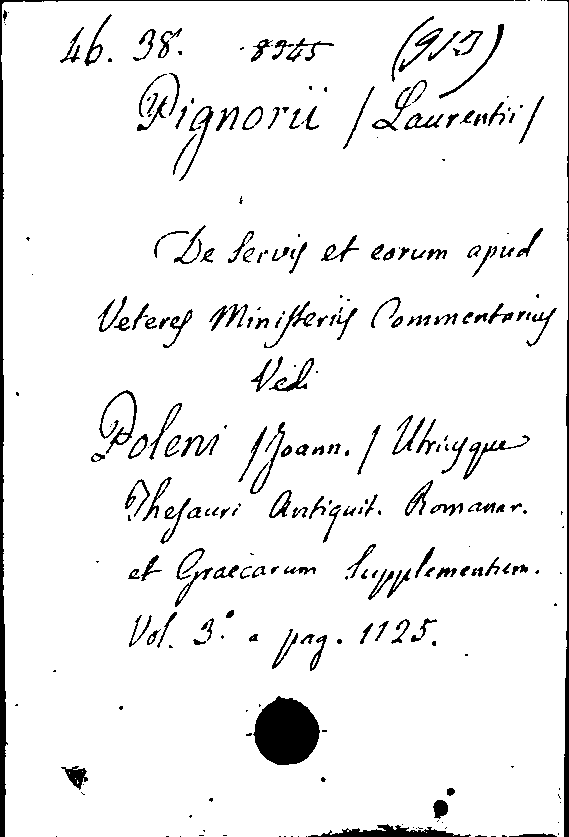 46. 38. 8345 (913)
Pignorii /Laurentii/
De Servis et eorum apud
Veteres Ministeriis Commentarius
Vedi
Poleni /Joann./ Utriusque
Thesauri Antiquit. Romanar.
et Graecarum Supplementum.
Vol. 3.° a pag. 1125.